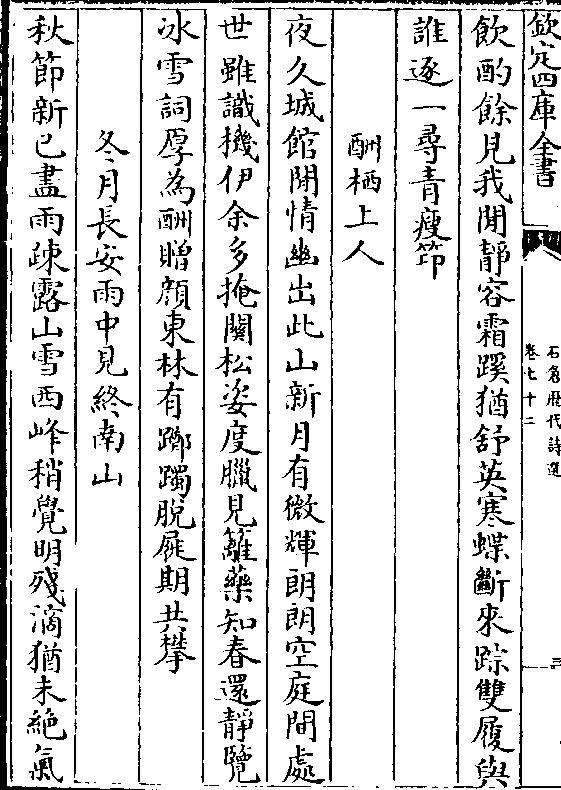 欽定四庫全書
石倉歷代詩選
卷七十二
三
飲酌餘見我閒靜容霜蹊猶舒英寒蝶斷來踪雙履與
誰逐一尋青瘦笻
酬栖上人
夜久城館閒情幽出此山新月有微輝朗朗空庭間處
世雖識機伊余多掩關松姿度臘見籬藥知春還靜覽
冰雪詞厚為酬贈顔東林有躑躅脫屣期共攀
冬月長安雨中見終南山
秋節新已盡雨疎露山雪西峰稍覺明殘滴猶未絶氣